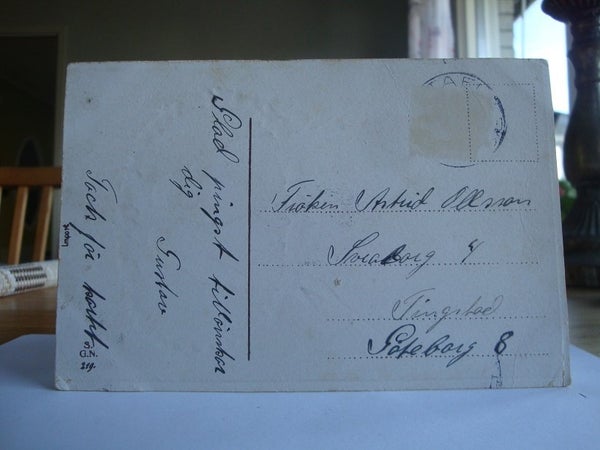 Glad pingst tillönskar
dig
Gustav
Tack för kortet
Fröken Astrid Ollsson
Sveaborg 4
Tingstad
Göteborg 8